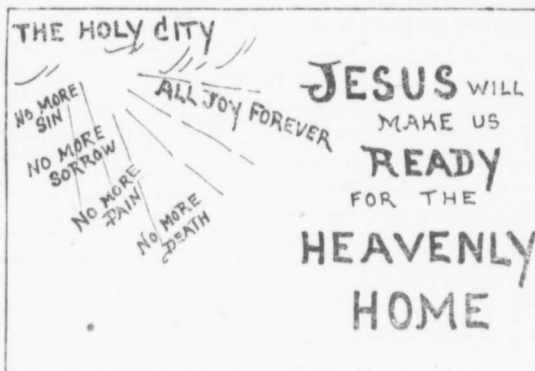 THE HOLY CITY
NO MORE
SIN
NO MORE
SORROW
NO MORE
PAIN
NO MORE
DEATH
ALL JOY FOREVER
JESUS WILL
MAKE US
READY
FOR THE
HEAVENLY
HOME